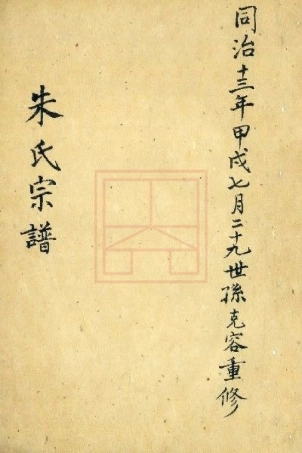 同治十三年甲戌七月二十九世孫克容重修
朱氏宗譜